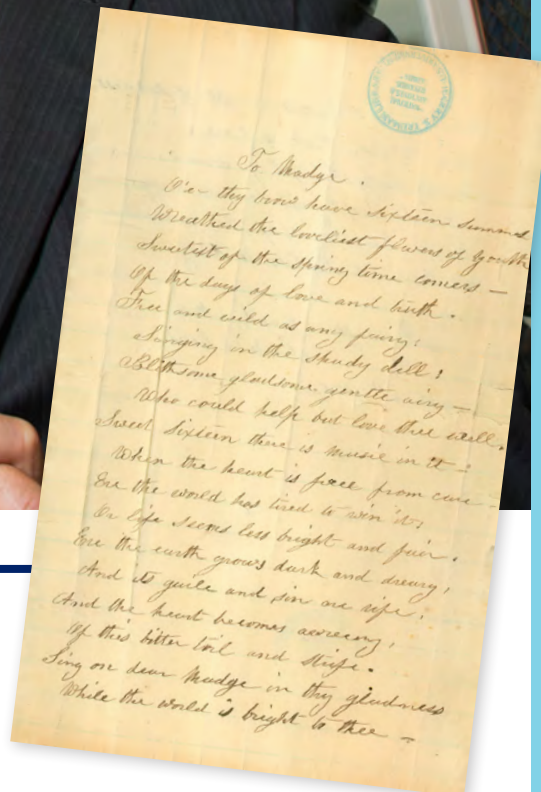 To Madge.
O'er thy brow have sixteen summers
Wreathed the loveliest flowers of youth
Sweetest of the spring time comers —
Of the days of love and truth.
Free and wild as any fairy,
Singing in the shady dell!
Blithsome gladsome gentle airy —
Who could help but love thee well.
Sweet Sixteen there is music in it —
When the heart is free from care —
Ere the world has tired to win it,
Or life seems less bright and fair.
Ere the earth grows dark and dreary,
And its guile and sin are rife,
And the heart becomes
Of this bitter toil and strife.
Sing on dear Madge in thy gladness
While the world is bright to thee —